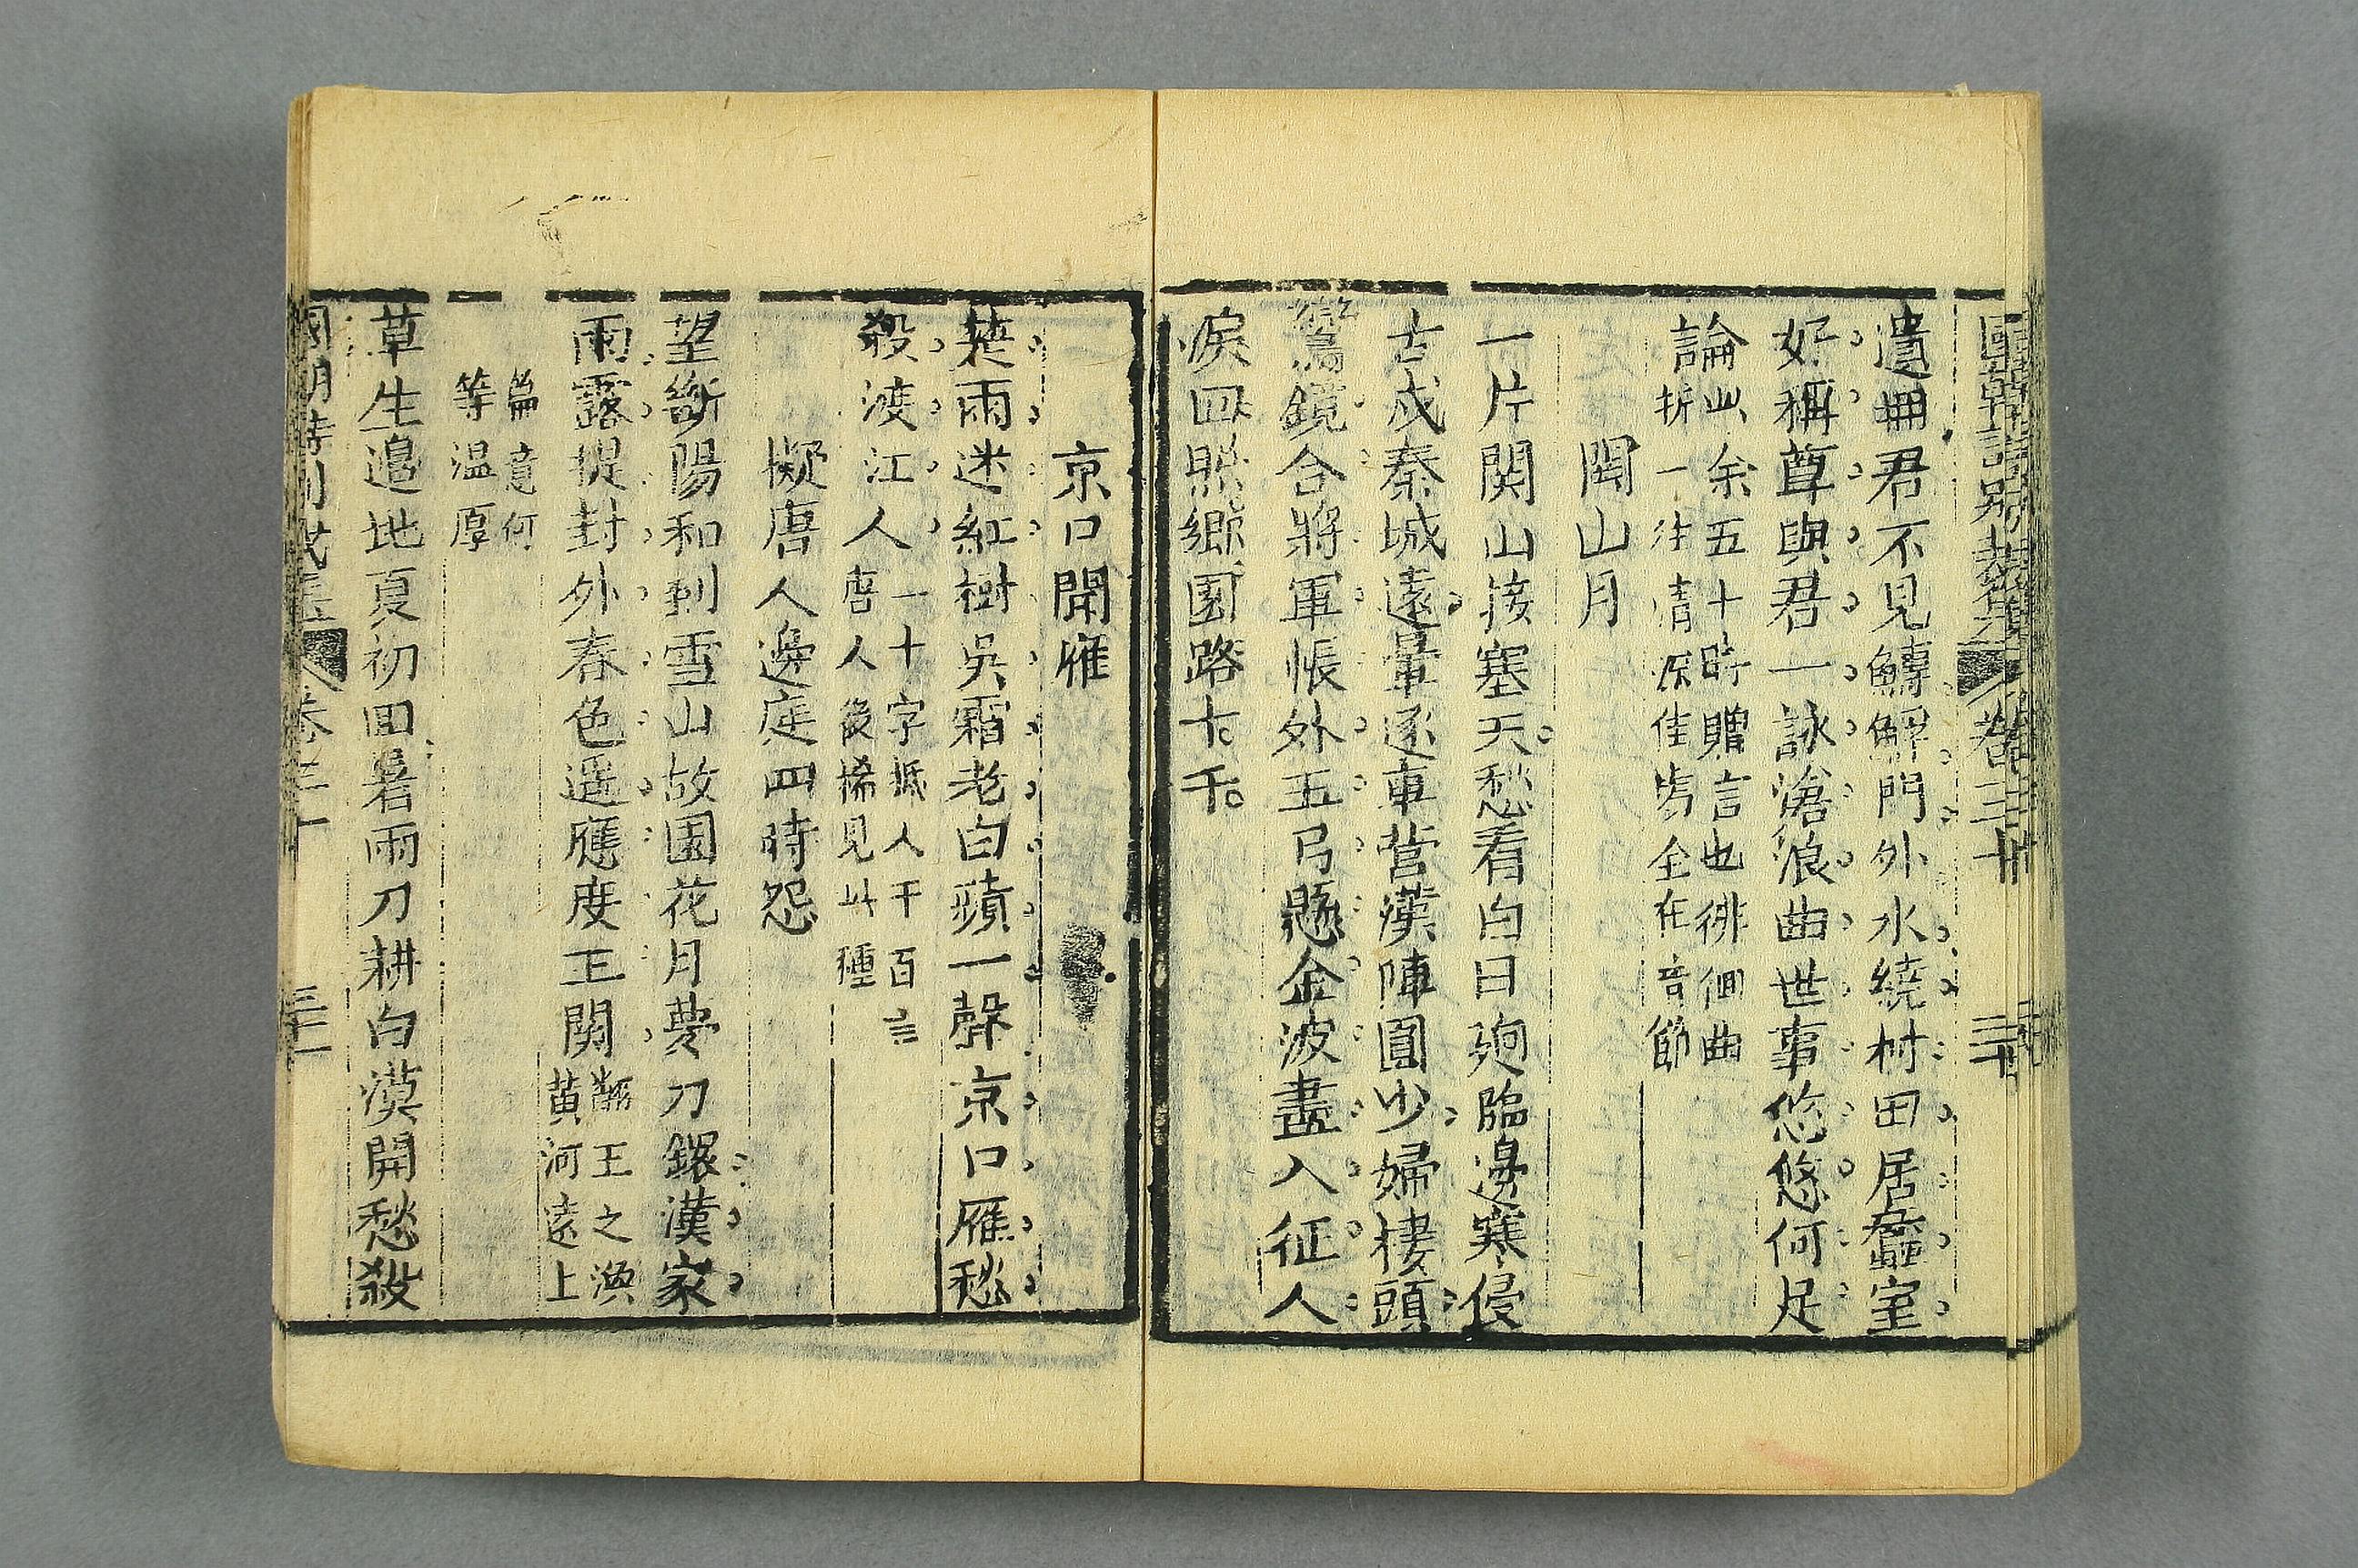 國朝詩別裁集 卷三十 三十
遺冊君不見鱄魳門外水繞村田居蠶室
好稱尊與君一詠滄浪曲世事悠悠何足
論此余五十時贈言也徘徊曲
折一往情深佳處全在音節
關山月
一片関山接塞天愁看白日逈臨邊寒侵
古戍秦城遠暈逐車營漢陣圓少婦樓頭
鸞鏡合將軍帳外玉弓懸金波盡入征人
淚回照鄉園路十千
京口聞雁
楚雨迷紅樹吳霜老白蘋一聲京口雁愁
殺渡江人一十字抵人千百言
唐人後稀見此種
擬唐人邊庭四時怨
望斷陽和到雪山故園花月夢刀鐶漢家
雨露提封外春色遥應度玉関翻王之渙
黃河遠上
篇意何
等温厚
草生邉地夏初回暑雨刀耕白漠開愁殺
國朝詩別裁集 卷三十 三十一